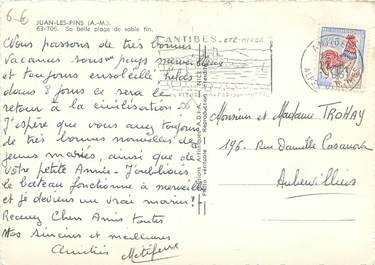 6 €
JUAN-LES-PINS (A.-M.).
63-706. Sa belle plage de sable fin.
ANTIBES
Nous passons de très bonnes
vacances sous un pays merveilleux
et toujours ensoleillé, hélas
dans 8 jours ce sera le
retour à la civilisation
J'espère que vous avez toujours
de très bonnes nouvelles des
jeunes mariés, ainsi que de
votre petite Annie. J'oubliais
le bateau fonctionne à merveille
et je deviens un vrai marin!
Recevez Chers Amis toutes
Nos sincères et meilleures
Amitiés
Monsieur et Madame TROHAY
196 - Rue Danielle Casanova
Aubervilliers